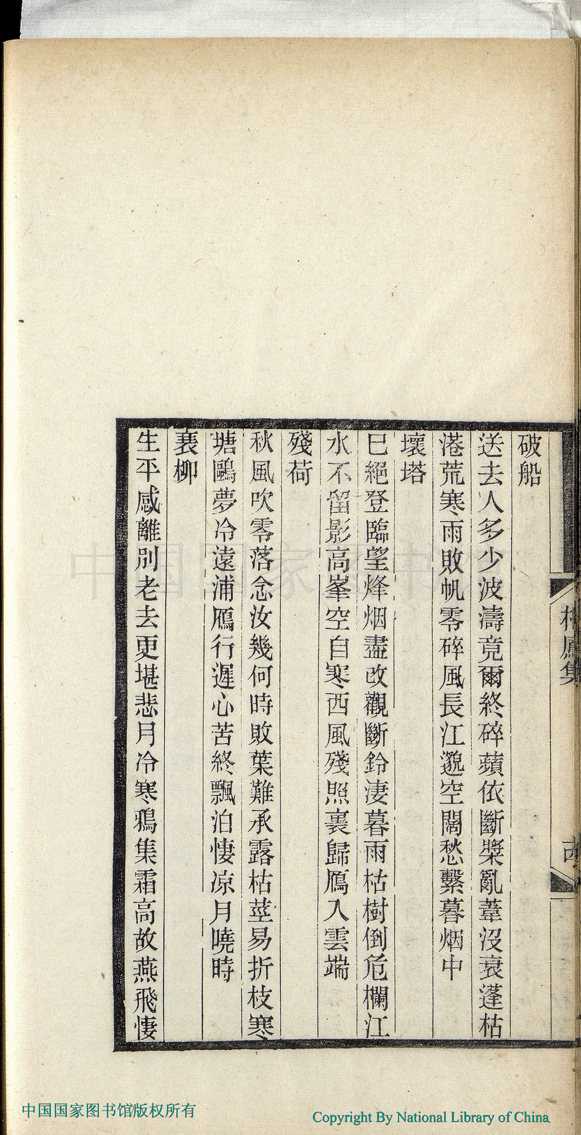 破船
送去人多少波濤竟爾終碎蘋依斷槳亂葦沒衰蓬枯
港荒寒雨敗帆零碎風長江邈空闊愁繫暮烟中
壞塔
已絕登臨望烽烟盡改觀斷鈴淒暮雨枯樹倒危欄江
水不留影高峯空自寒西風殘照裏歸鴈入雲端
殘荷
秋風吹零落念汝幾何時敗葉難承露枯莖易折枝寒
塘鷗夢冷遠浦鴈行遲心苦終飄泊悽凉月曉時
衰柳
生平感離別老去更堪悲月冷寒鴉集霜高故燕飛悽
中国国家图书馆
中国国家图书馆版权所有
Copyright By National Library of China